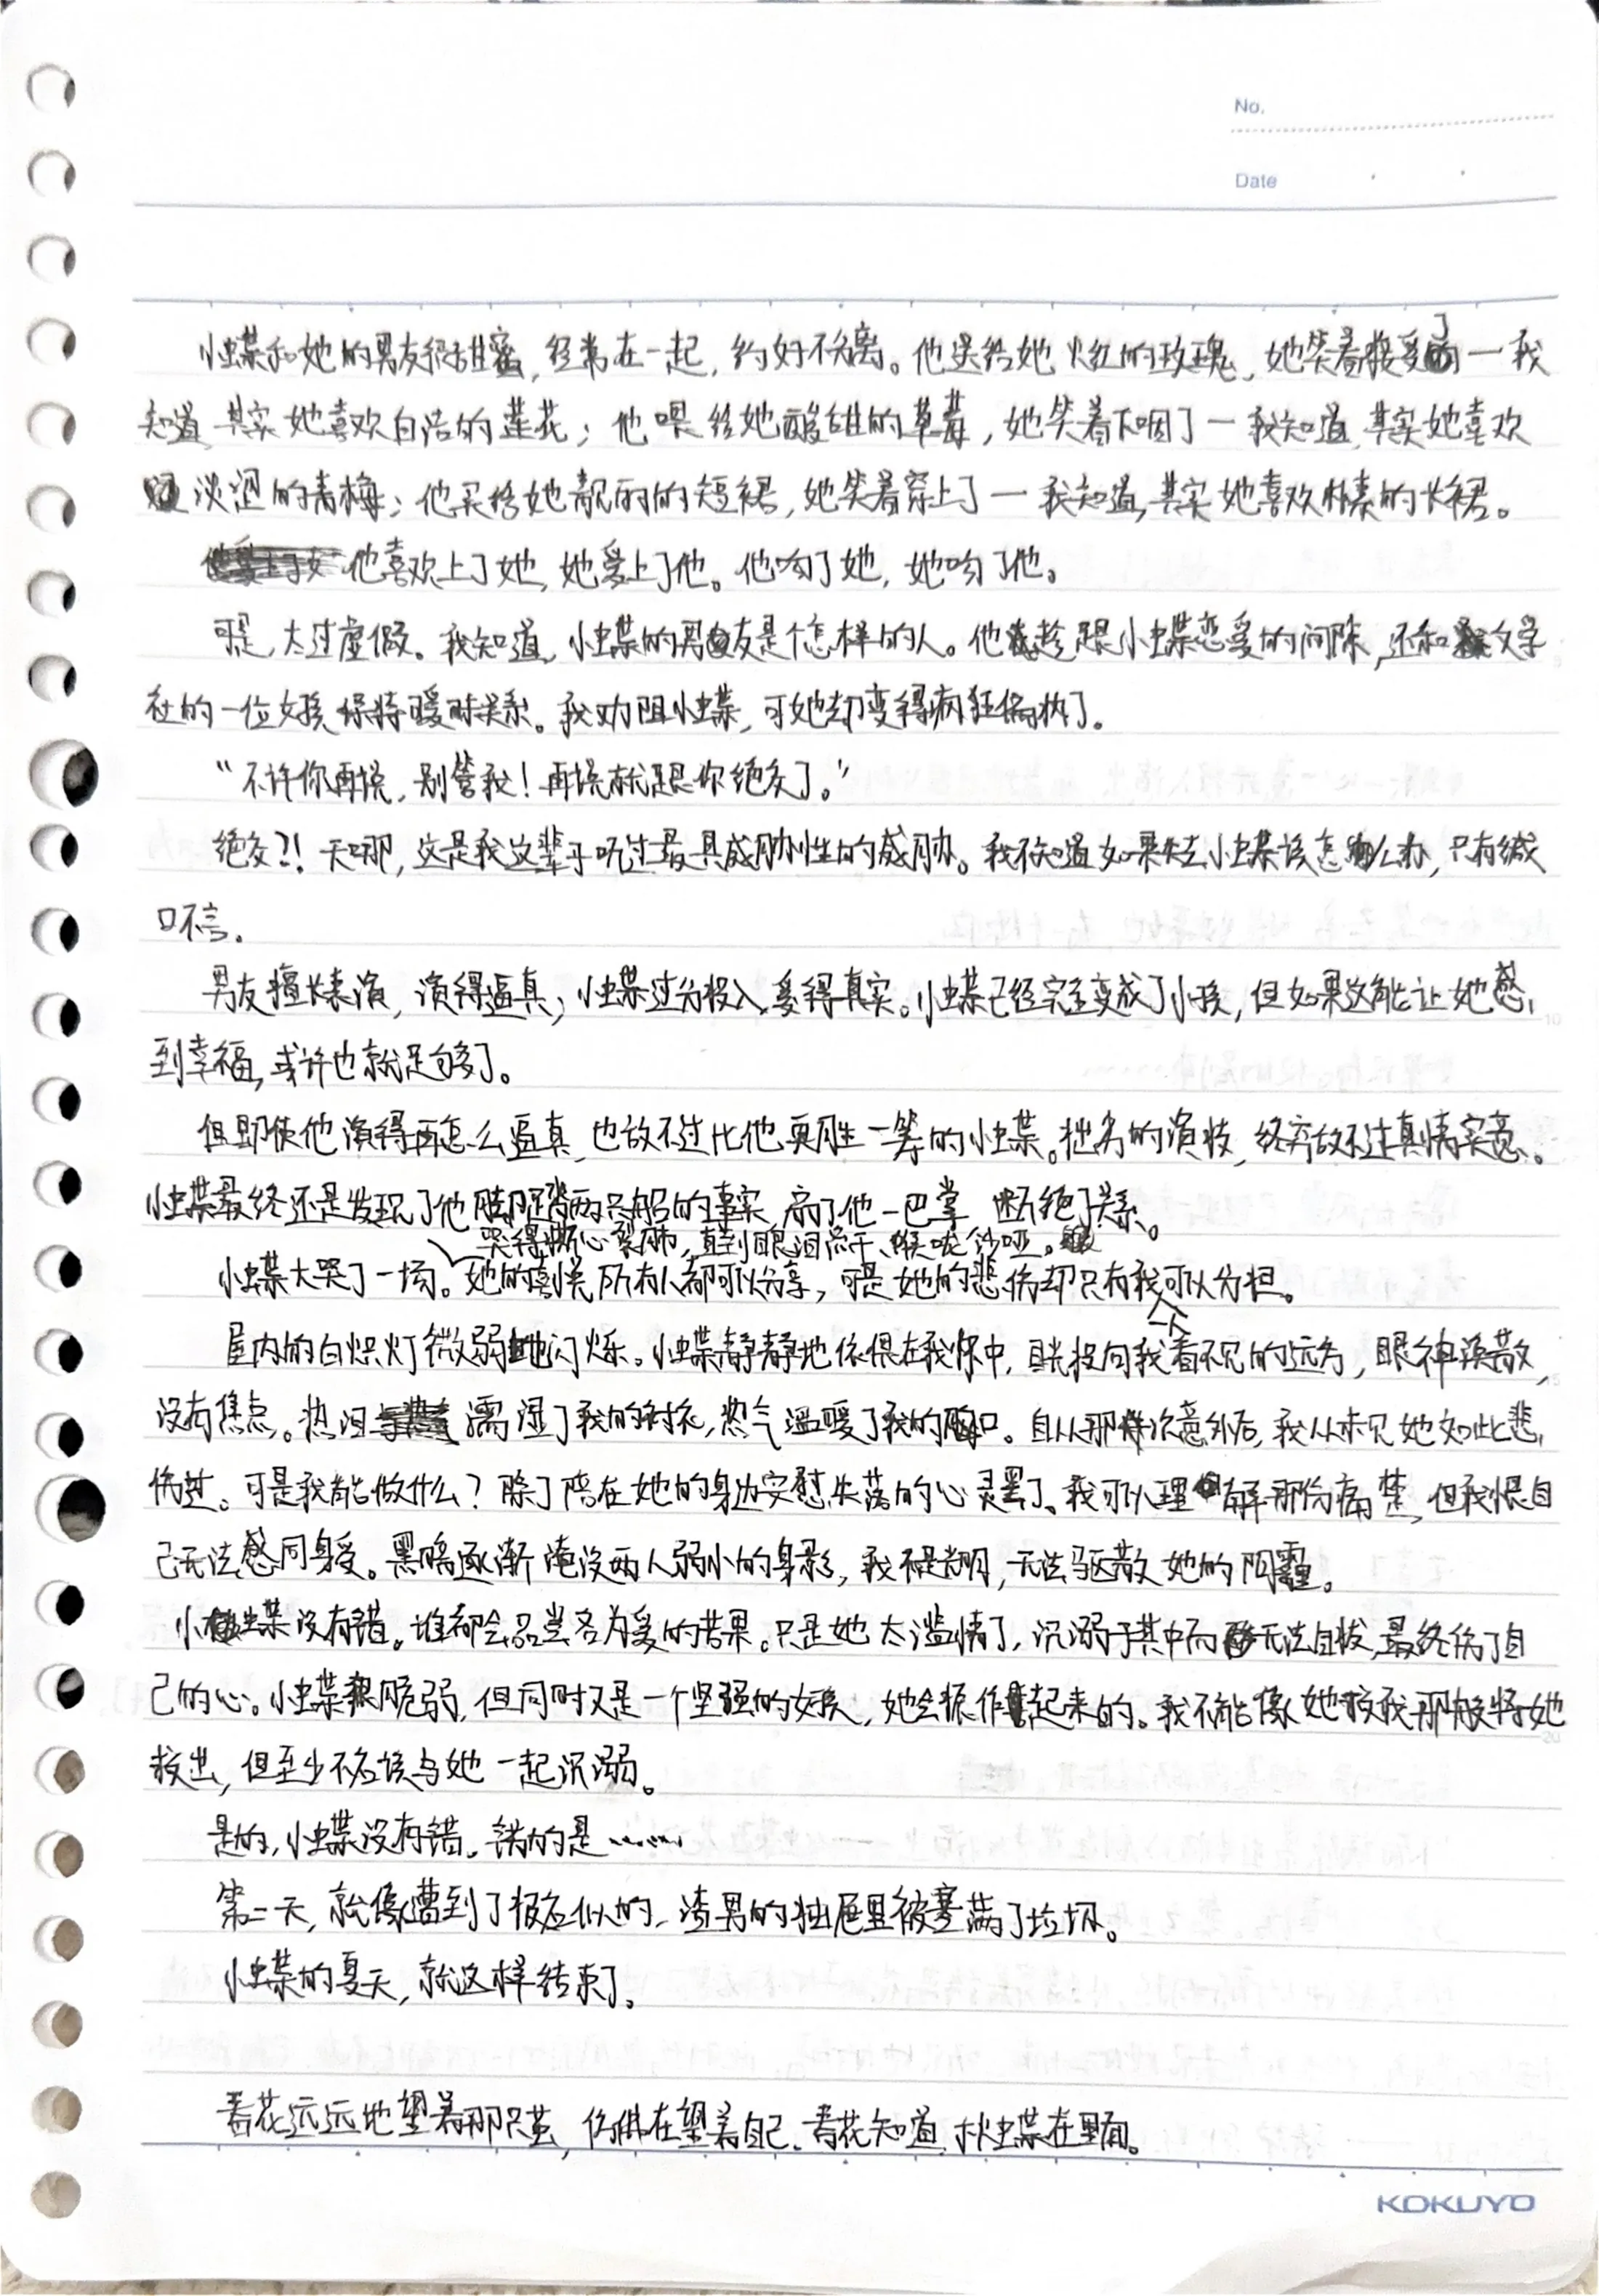 No.
Date
小蝶和她的男友很甜蜜，经常在一起，约好不分离。他送给她火红的玫瑰，她笑着接受了—我
知道，其实她喜欢白洁的莲花；他喂给她酸甜的草莓，她笑着下咽了—我知道，其实她喜欢
淡涩的青梅；他买给她靓丽的短裙，她笑着穿上了—我知道，其实她喜欢朴素的长裙。
他喜欢上了她，她爱上了他。他吻了她，她吻了他。
可是，太过虚假。我知道，小蝶的男友是个怎样的人。他趁跟小蝶恋爱的间隙，还和文学
社的一位女孩保持暧昧关系。我劝阻小蝶，可她却变得病狂偏执了。
“不许你再说，别管我！再说就跟你绝交了。”
绝交？！天哪，这是我这辈子听过最具威胁性的威胁。我不知道如果失去小蝶该怎么办，只有缄
口不言。
男友擅长表演，演得逼真；小蝶过分投入，爱得真实。小蝶已经完全变成了小孩，但如果这能让她感
到幸福，或许也就足够了。
但即使他演得再怎么逼真，也敌不过比他更胜一筹的小蝶。拙劣的演技，终究敌不过真情实意。
小蝶最终还是发现了他脚踏两只船的事实，扇了他一巴掌，断绝了关系。
哭得撕心裂肺，直到眼泪流干、喉咙沙哑。
小蝶大哭了一场。她的喜悦所有人都可以分享，可是她的悲伤却只有我一个人可以分担。
屋内的白炽灯微弱地闪烁。小蝶静静地依偎在我怀中，目光投向我看不见的远方，眼神涣散，
没有焦点。热泪濡湿了我的衬衣，热气温暖了我的胸口。自从那次意外后，我从未见她如此悲
伤过。可是我能做什么？除了陪在她的身边安慰失落的心灵罢了。我可以理解那份痛楚，但我恨自
己无法感同身受。黑暗逐渐淹没两人弱小的身影，我不是光明，无法驱散她的阴霾。
小蝶没有错。谁都会品尝名为爱的苦果。只是她太滥情了，沉溺于其中而无法自拔，最终伤了自
己的心。小蝶很脆弱，但同时又是一个坚强的女孩，她会振作起来的。我不能像她救我那般将她
救出，但至少不应该与她一起沉溺。
是的，小蝶没有错。错的是……
第二天，就像遭到了报应似的，渣男的抽屉里被塞满了垃圾。
小蝶的夏天，就这样结束了。
春花远远地望着那只茧，仿佛在望着自己。春花知道，秋蝶在里面。
KOKUYO